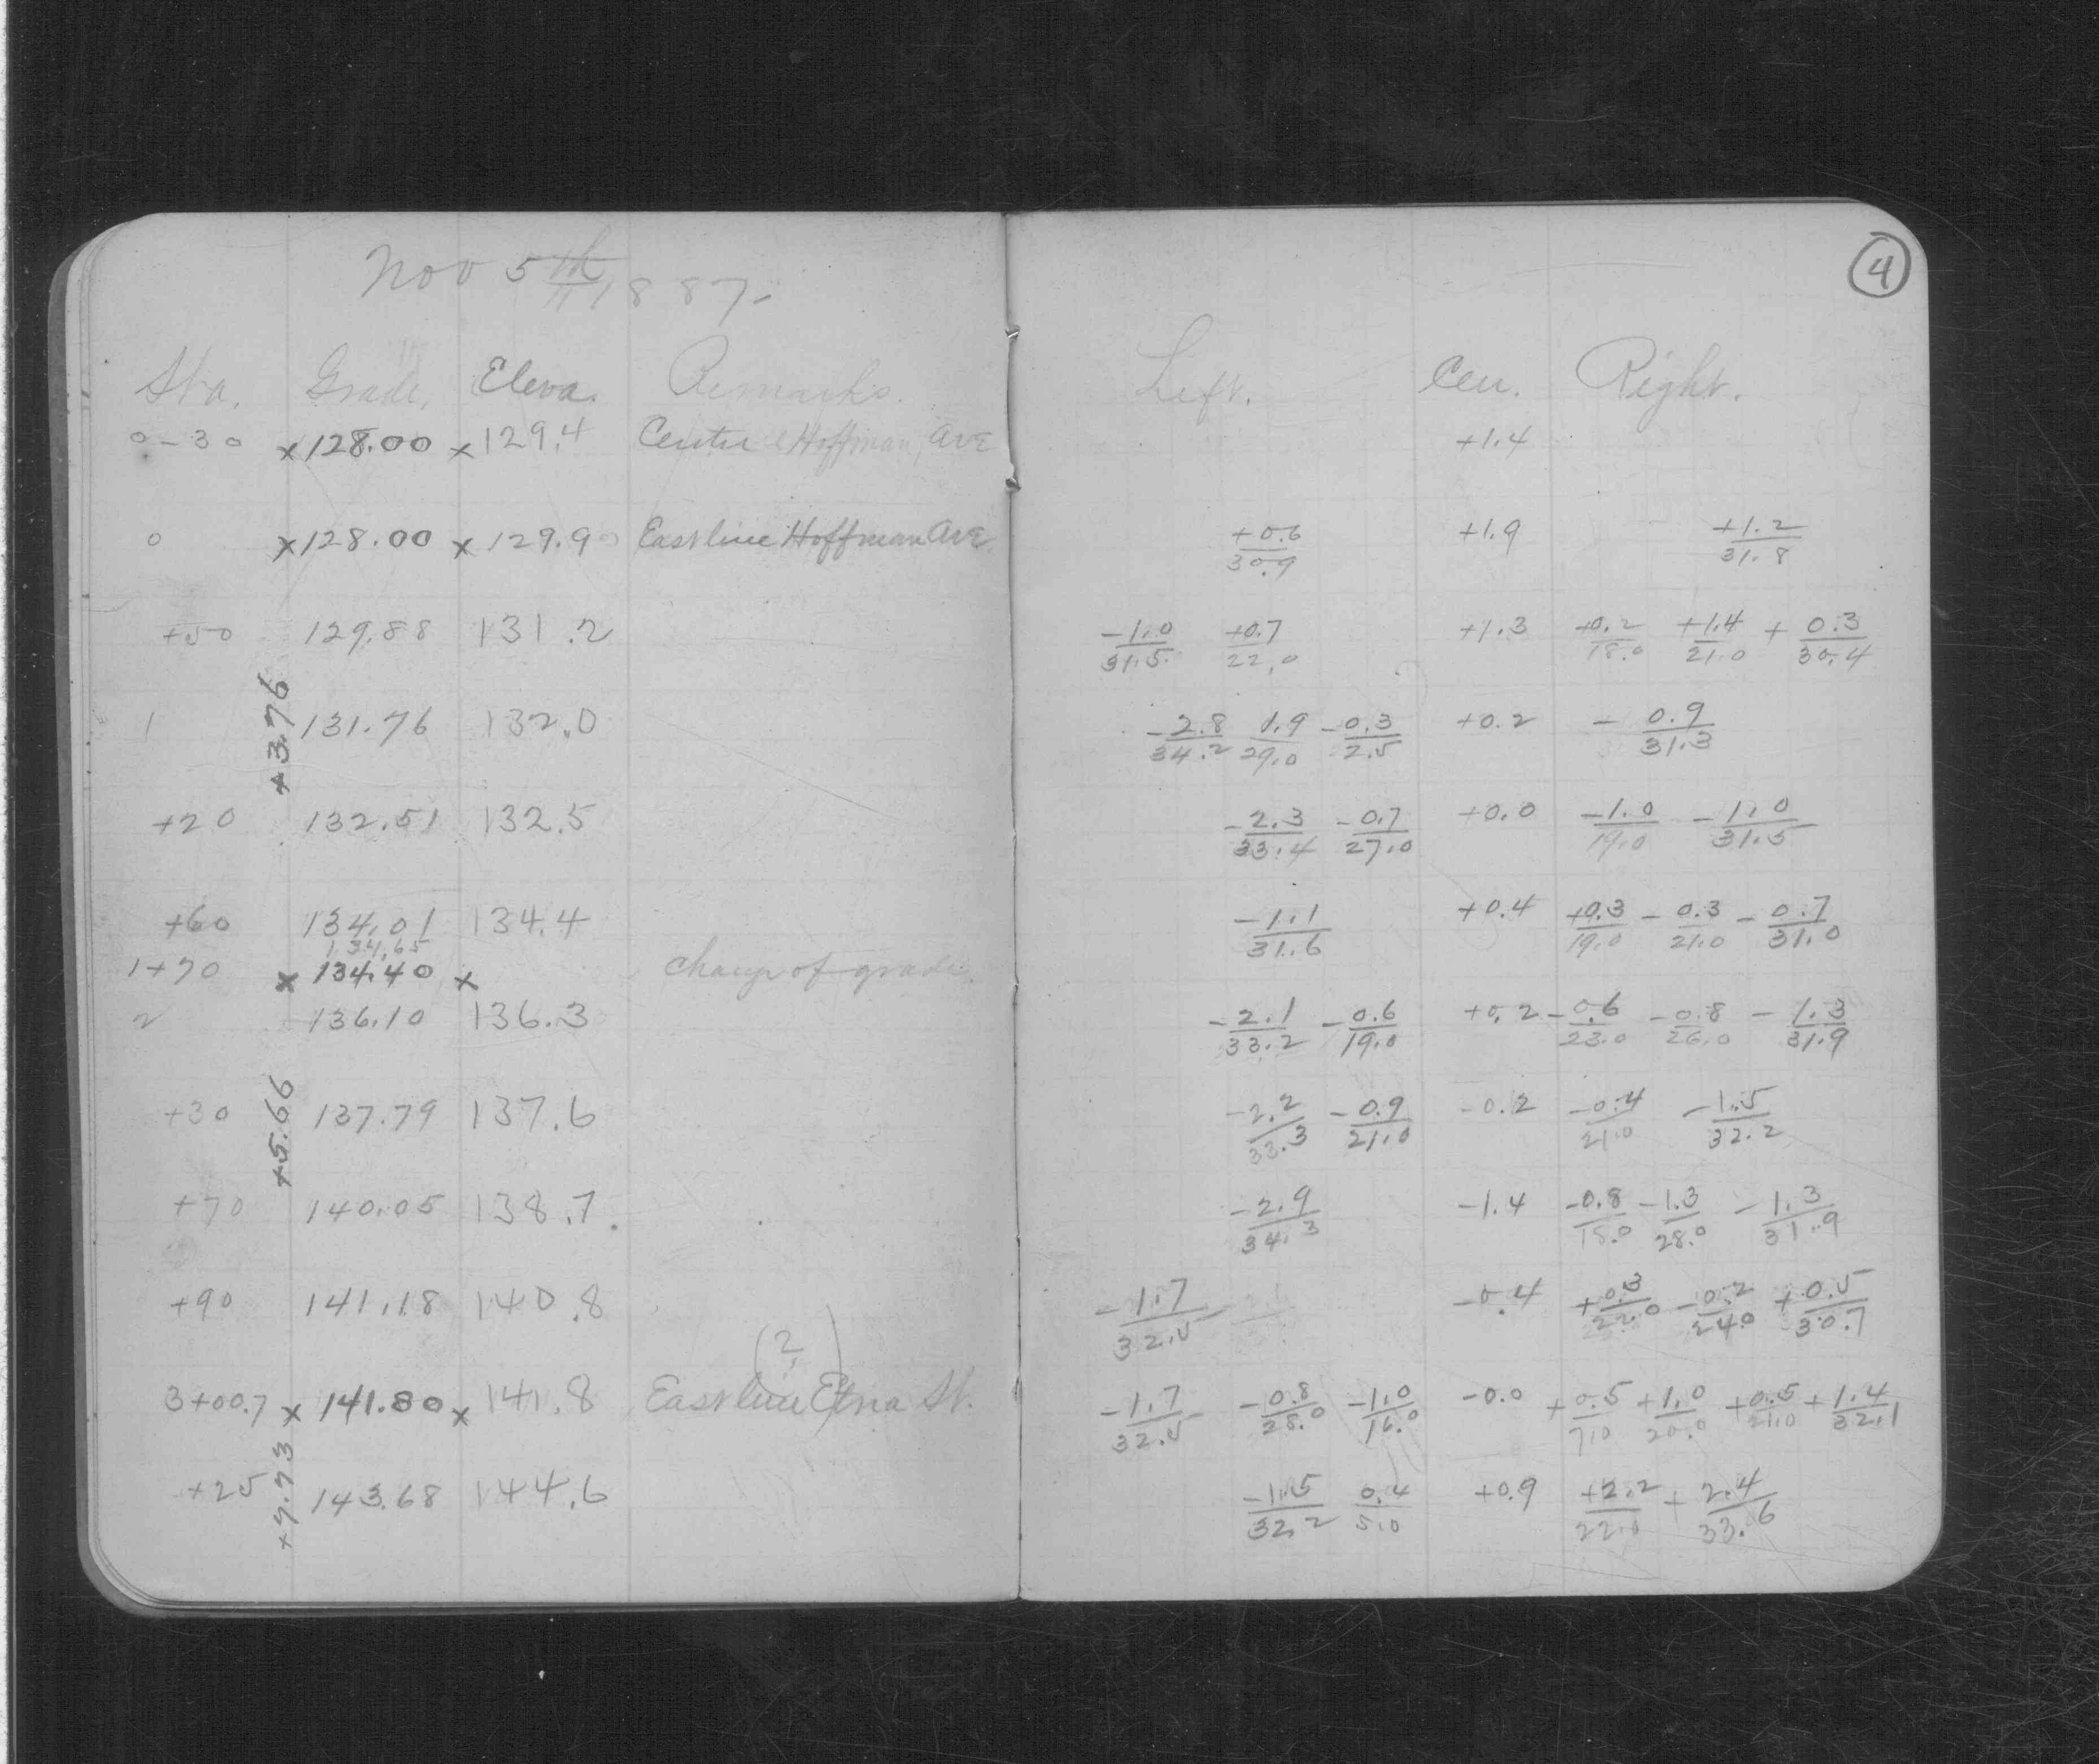 Nov 5th 1887.
4
Sta. Grade. Eleva. Remarks. Left. Cen. Right.
0-30 x 128.00 x 129.4 Center Hoffman Ave +1.4
0 x 128.00 x 129.9 East line Hoffman Ave +0.6/30.9 +1.9 +1.2/31.8
+50 129.88 131.2 -1.0/31.5 +0.7/22.0 +1.3 +0.2/18.0 +1.4/21.0 +0.3/30.4
+3.76
1 131.76 132.0 -2.8/34.2 1.9/29.0 -0.3/2.5 +0.2 -0.9/31.3
+20 132.51 132.5 -2.3/33.4 -0.7/27.0 +0.0 -1.0/19.0 -1.0/31.5
+60 134.01 134.4 -1.1/31.6 +0.4 +0.3/19.0 -0.3/21.0 -0.7/31.0
134.65
1+70 x 134.40 x change of grade
2 136.10 136.3 -2.1/33.2 -0.6/19.0 +0.2 -0.6/23.0 -0.8/26.0 -1.3/31.9
+5.66
+30 137.79 137.6 -2.2/33.3 -0.9/21.0 -0.2 -0.4/21.0 -1.5/32.2
+70 140.05 138.7. -2.9/34.3 -1.4 -0.8/18.0 -1.3/28.0 -1.3/31.9
+90 141.18 140.8 -1.7/32.5 -0.4 +0.3/22.0 -0.2/24.0 +0.5/30.7
(?)
3+00.7 x 141.80 x 141.8 East line Etna St. -1.7/32.5 -0.8/28.0 -1.0/16.0 -0.0 +0.5/7.0 +1.0/20.0 +0.5/21.0 +1.4/32.1
+7.73
+25 143.68 144.6 -1.5/32.2 0.4/5.0 +0.9 +2.2/22.0 +2.4/33.6